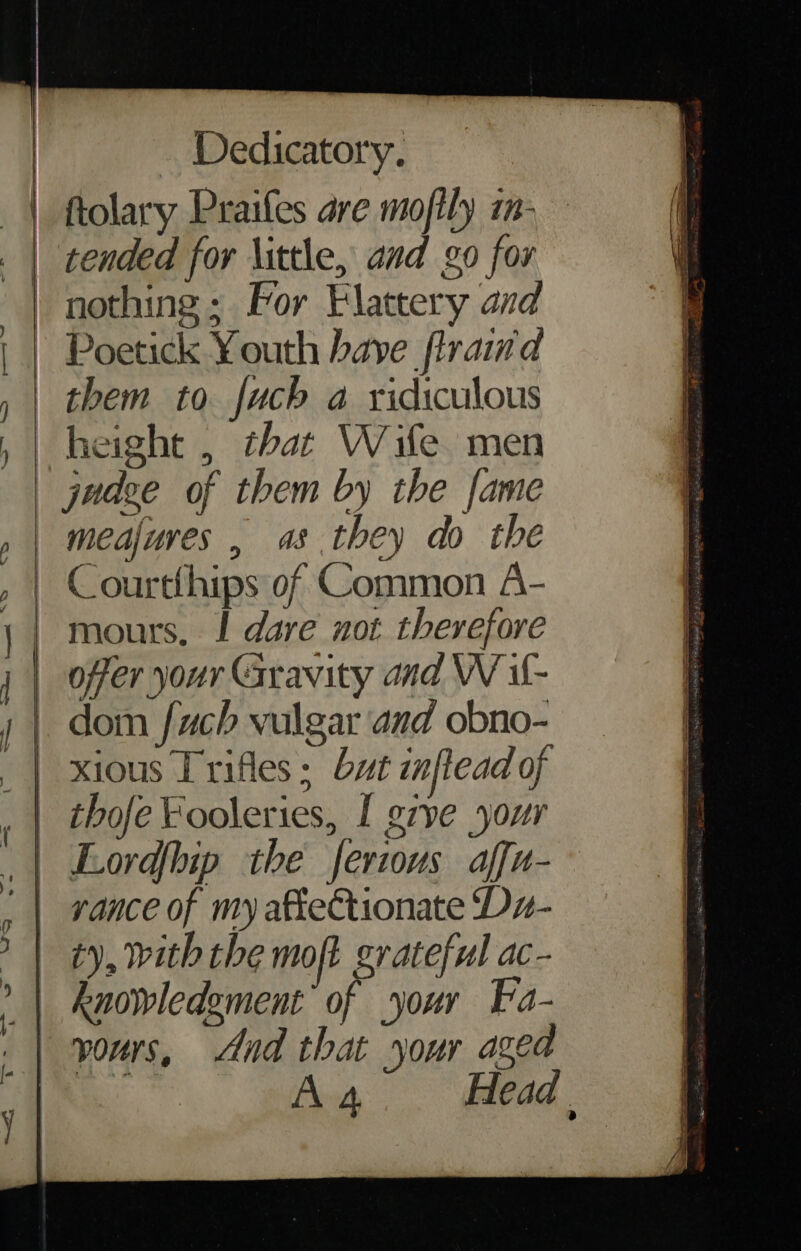 Dedicatory.
ſtolary Praiſes are moſtly in-
tended for little, and go for
nothing; For Flattery and
Poetick Youth have ſtrain'd
them to ſuch a ridiculous
height, that Wiſe men
judge of them by the ſame
meaſures, as they do the
Courtſhips of Common A-
mours. I dare not therefore
offer your Gravity and Wiſ-
dom ſuch vulgar and obno-
xious Trifles; but inſtead of
thoſe Fooleries, I give your
Lordſhip the ſerious aſſu-
rance of my affectionate Du-
ty, with the moſt grateful ac-
knowledgment of your Fa-
vours, And that your aged
A 4 Head